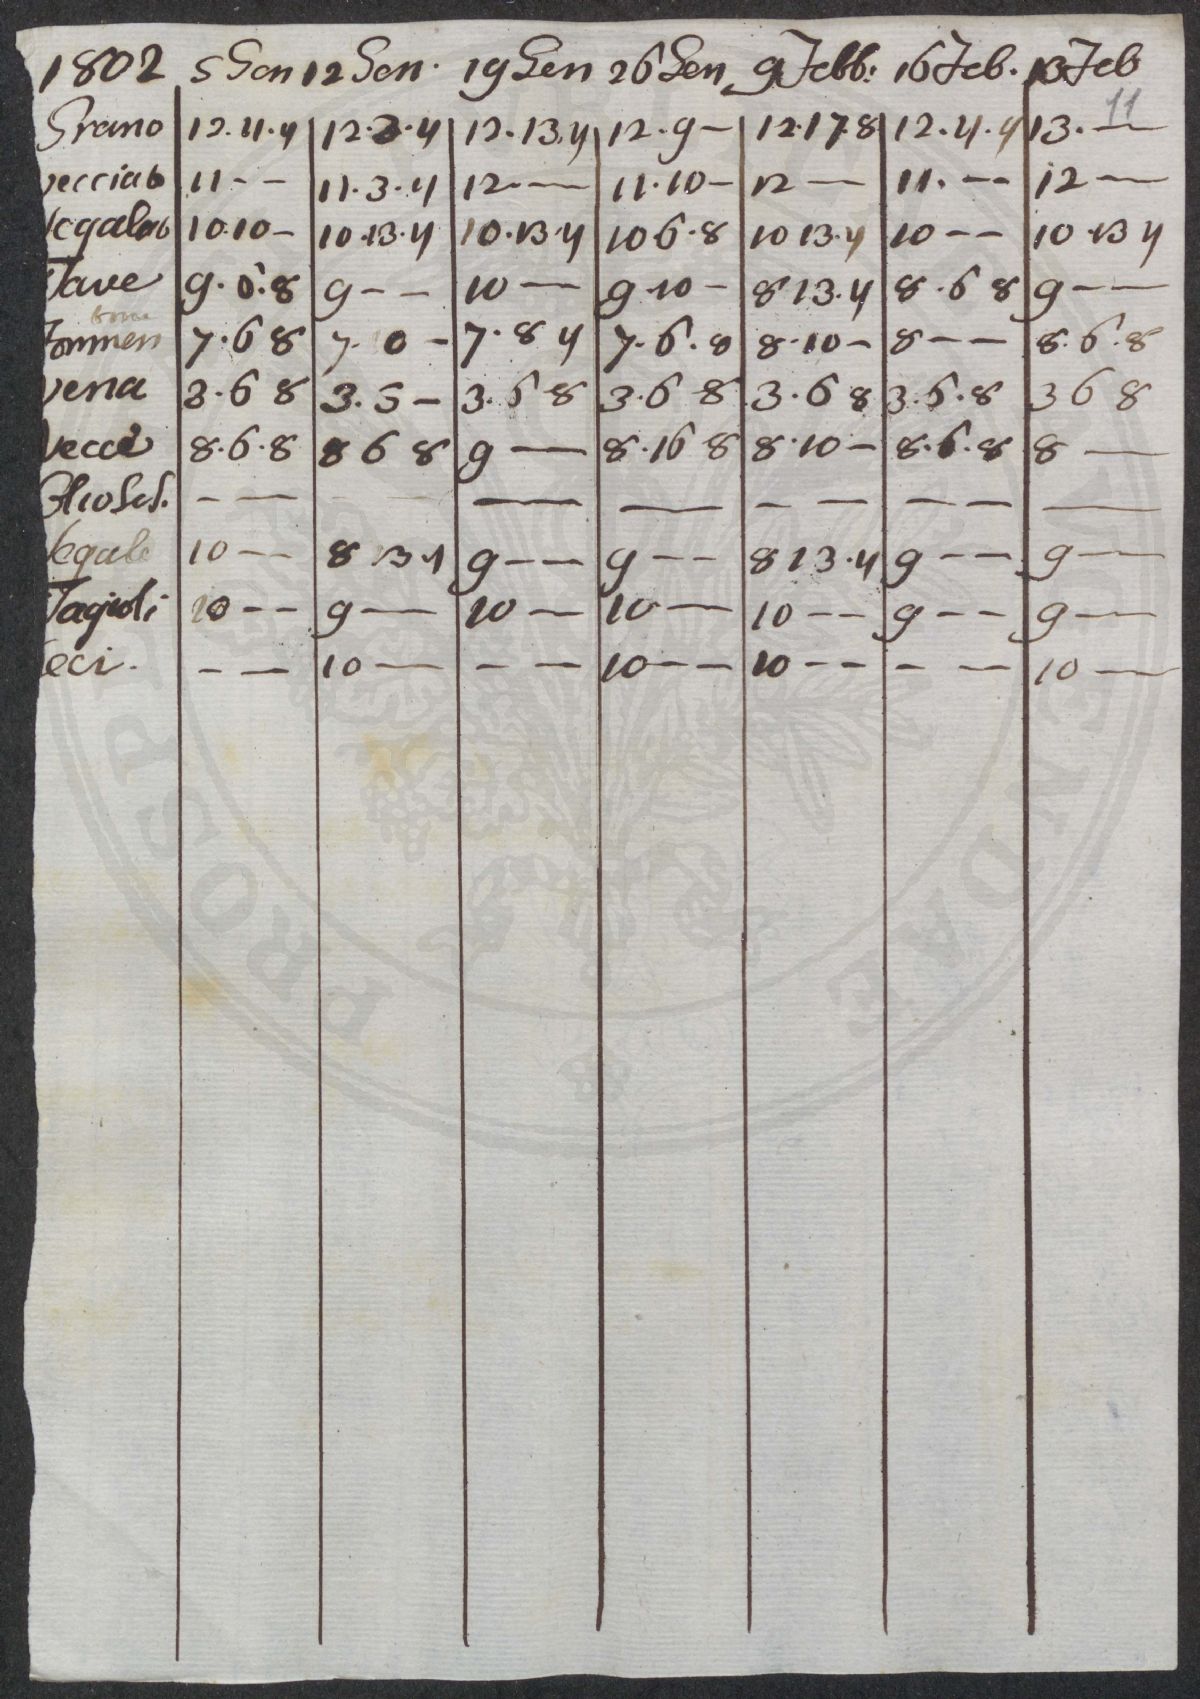 1802 5 Gen 12 Gen. 19 Gen 26 Gen 9 Febb: 16 Feb. Feb
11
Grano 12.4.4 12.2.4 12.13.4 12.9— 12.17.8 12.4.4 13.—
vecciato 11-- 11.3.4 12.— 11.10— 12— 11.-- 12—
segalato 10.10— 10.13.4 10.13.4 10 6.8 10 13.4 10-- 10 13 4
Fave 9.6.8 9-- 10— 9 10— 8 13.4 8.6 8 9--
Formen 7.6 8 7.10— 7.8 4 7.6.8 8.10— 8-- 8.6.8
vena 3.6 8 3.5— 3.6 8 3.6 8 3.6 8 3.6.8 3 6 8
vecce 8.6.8 8 6 8 9— 8.16 8 8.10— 8.6.8 8—
-- -- — — -- -- —
segale 10-- 8 13 4 9-- 9-- 8 13.4 9-- 9—
Fagioli 10-- 9— 10— 10— 10-- 9-- 9—
ceci. -- 10— -- 10-- 10-- -- 10—
PROSPI AE